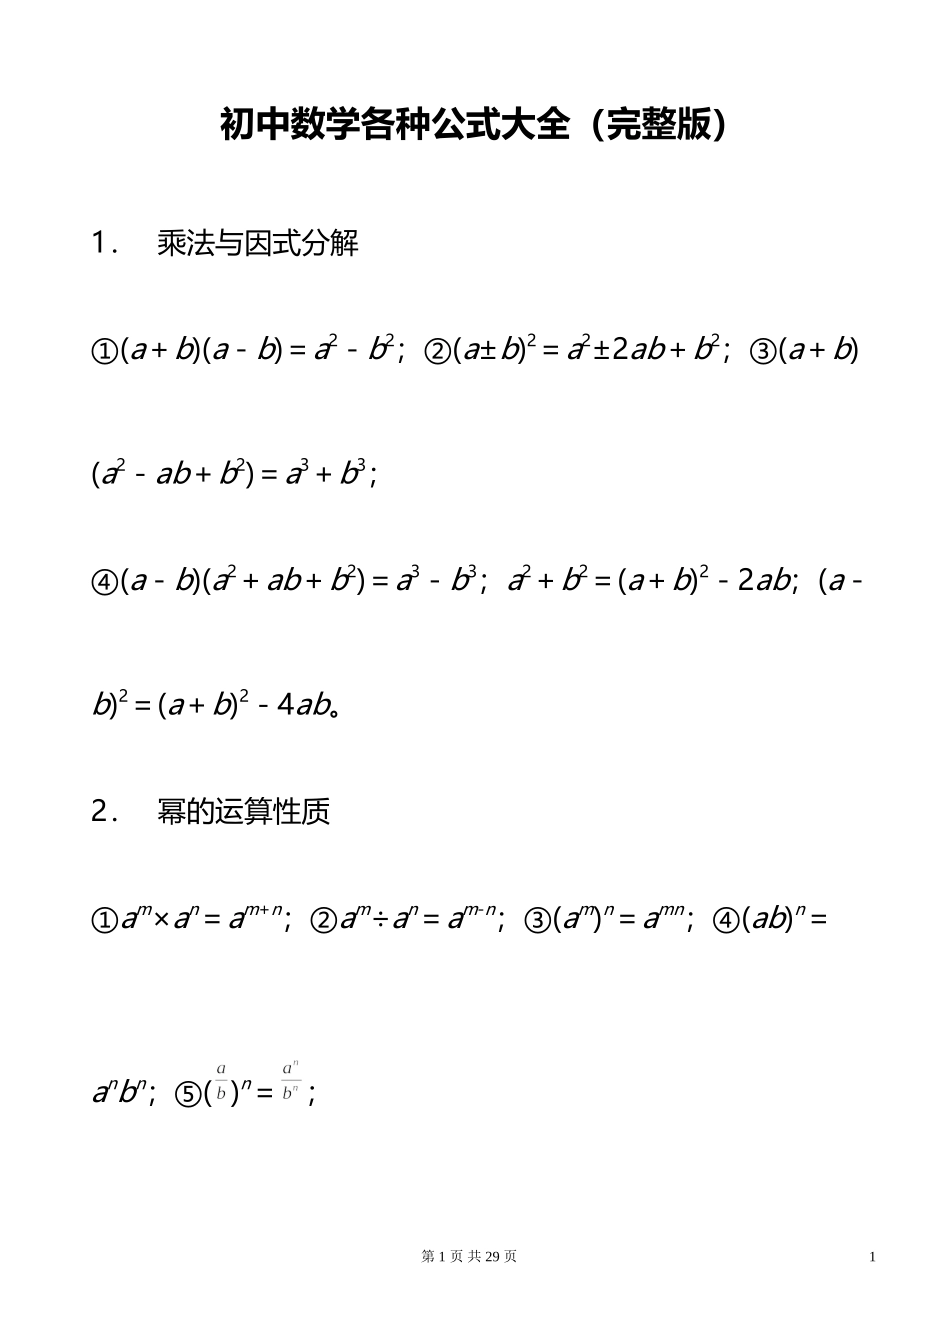 初中数学各种公式大全（完整版）
1． 乘法与因式分解
①(a＋b)(a－b)＝a²－b²；②(a±b)²＝a²±2ab＋b²；③(a＋b)
(a²－ab＋b²)＝a³＋b³；
④(a－b)(a²＋ab＋b²)＝a³－b³；a²＋b²＝(a＋b)²－2ab；(a－
b)²＝(a＋b)²－4ab。
2． 幂的运算性质
①aᵐ×aⁿ＝aᵐ⁺ⁿ；②aᵐ÷aⁿ＝aᵐ⁻ⁿ；③(aᵐ)ⁿ＝aᵐⁿ；④(ab)ⁿ＝
aⁿbⁿ；⑤(a/b)ⁿ＝aⁿ/bⁿ；
第 1 页 共 29 页 1